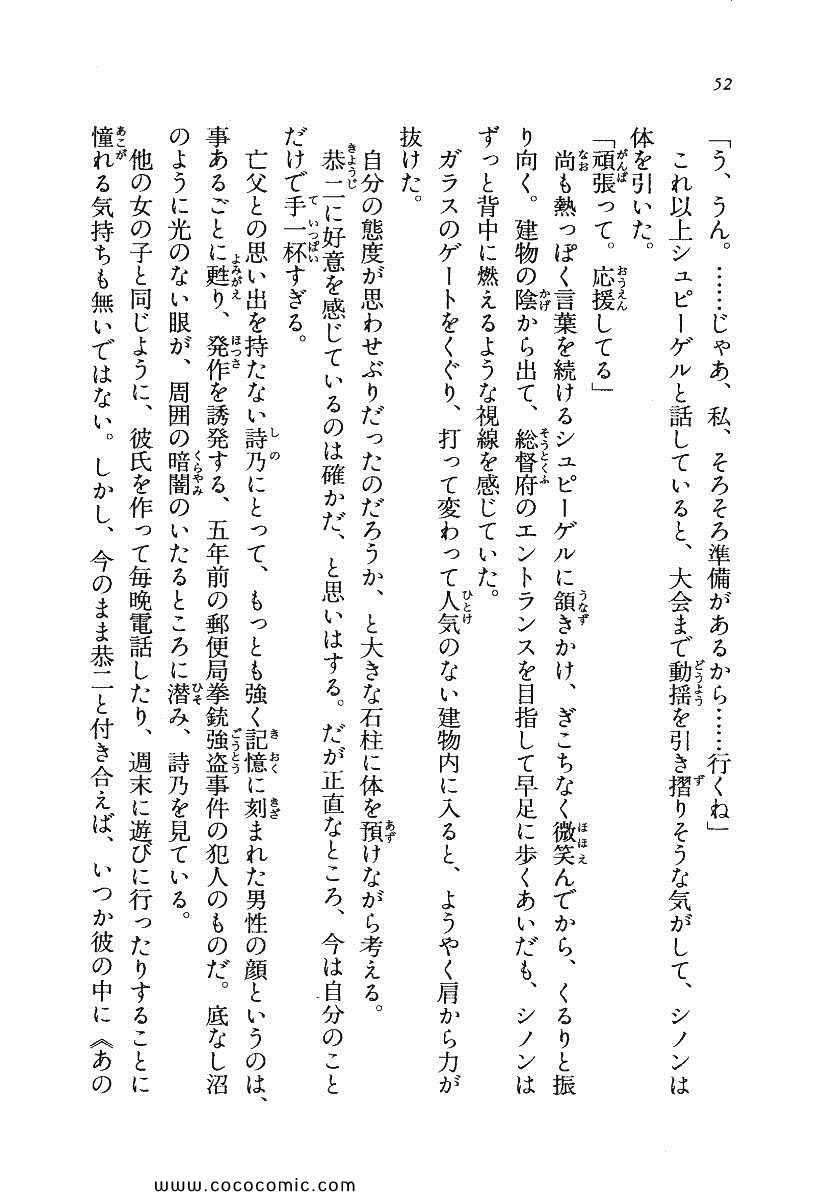 52
「う、うん。……じゃあ、私、そろそろ準備があるから……行くね」
これ以上シュピーゲルと話していると、大会まで動揺を引き摺りそうな気がして、シノンは
体を引いた。
「頑張って。応援してる」
尚も熱っぽく言葉を続けるシュピーゲルに頷きかけ、ぎこちなく微笑んでから、くるりと振
り向く。建物の陰から出て、総督府のエントランスを目指して早足に歩くあいだも、シノンは
ずっと背中に燃えるような視線を感じていた。
ガラスのゲートをくぐり、打って変わって人気のない建物内に入ると、ようやく肩から力が
抜けた。
自分の態度が思わせぶりだったのだろうか、と大きな石柱に体を預けながら考える。
恭二に好意を感じているのは確かだ、と思いはする。だが正直なところ、今は自分のこと
だけで手一杯すぎる。
亡父との思い出を持たない詩乃にとって、もっとも強く記憶に刻まれた男性の顔というのは、
事あるごとに甦り、発作を誘発する、五年前の郵便局拳銃強盗事件の犯人のものだ。底なし沼
のように光のない眼が、周囲の暗闇のいたるところに潜み、詩乃を見ている。
他の女の子と同じように、彼氏を作って毎晩電話したり、週末に遊びに行ったりすることに
憧れる気持ちも無いではない。しかし、今のまま恭二と付き合えば、いつか彼の中に《あの
www.cococomic.com